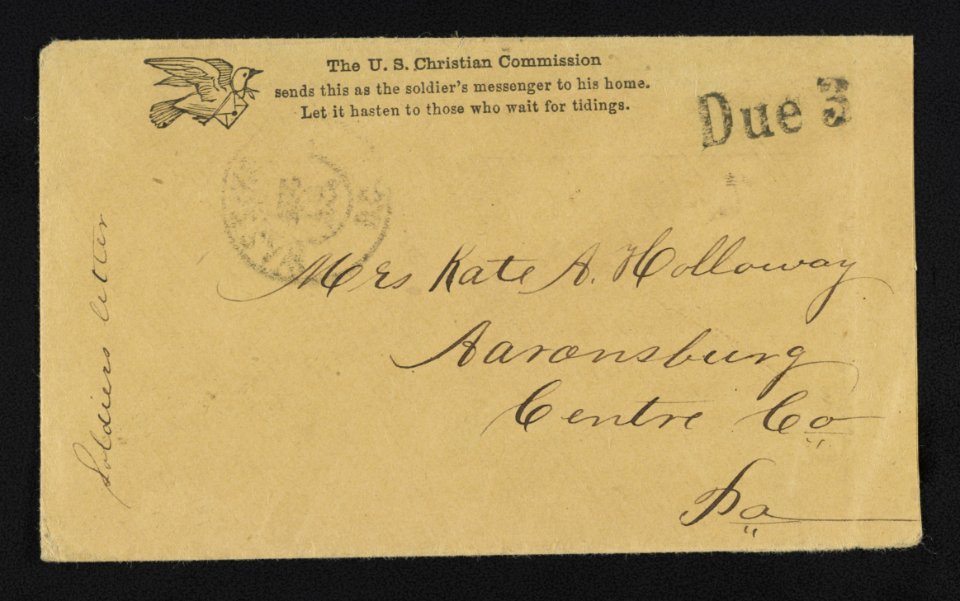 The U. S. Christian Commission
sends this as the soldier's messenger to his home.
Let it hasten to those who wait for tidings.
Due 3
Mrs Kate A. Holloway
Aaronsburg
Centre Co
Pa
Soldiers letter